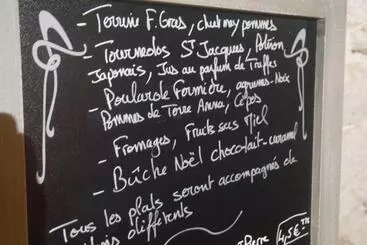 - Terrine F. Gras, chutney pommes
- Tournedos St Jacques, Potiron
Japonais, Jus au parfum de Truffes
- Poularde Fermière, agrumes-Noix
Pommes de Terre Anna, Cèpes
- Fromages, Fruits secs Miel
- Bûche Noël choco-lait-caramel
Tous les plats seront accompagnés de
différents
4,5€